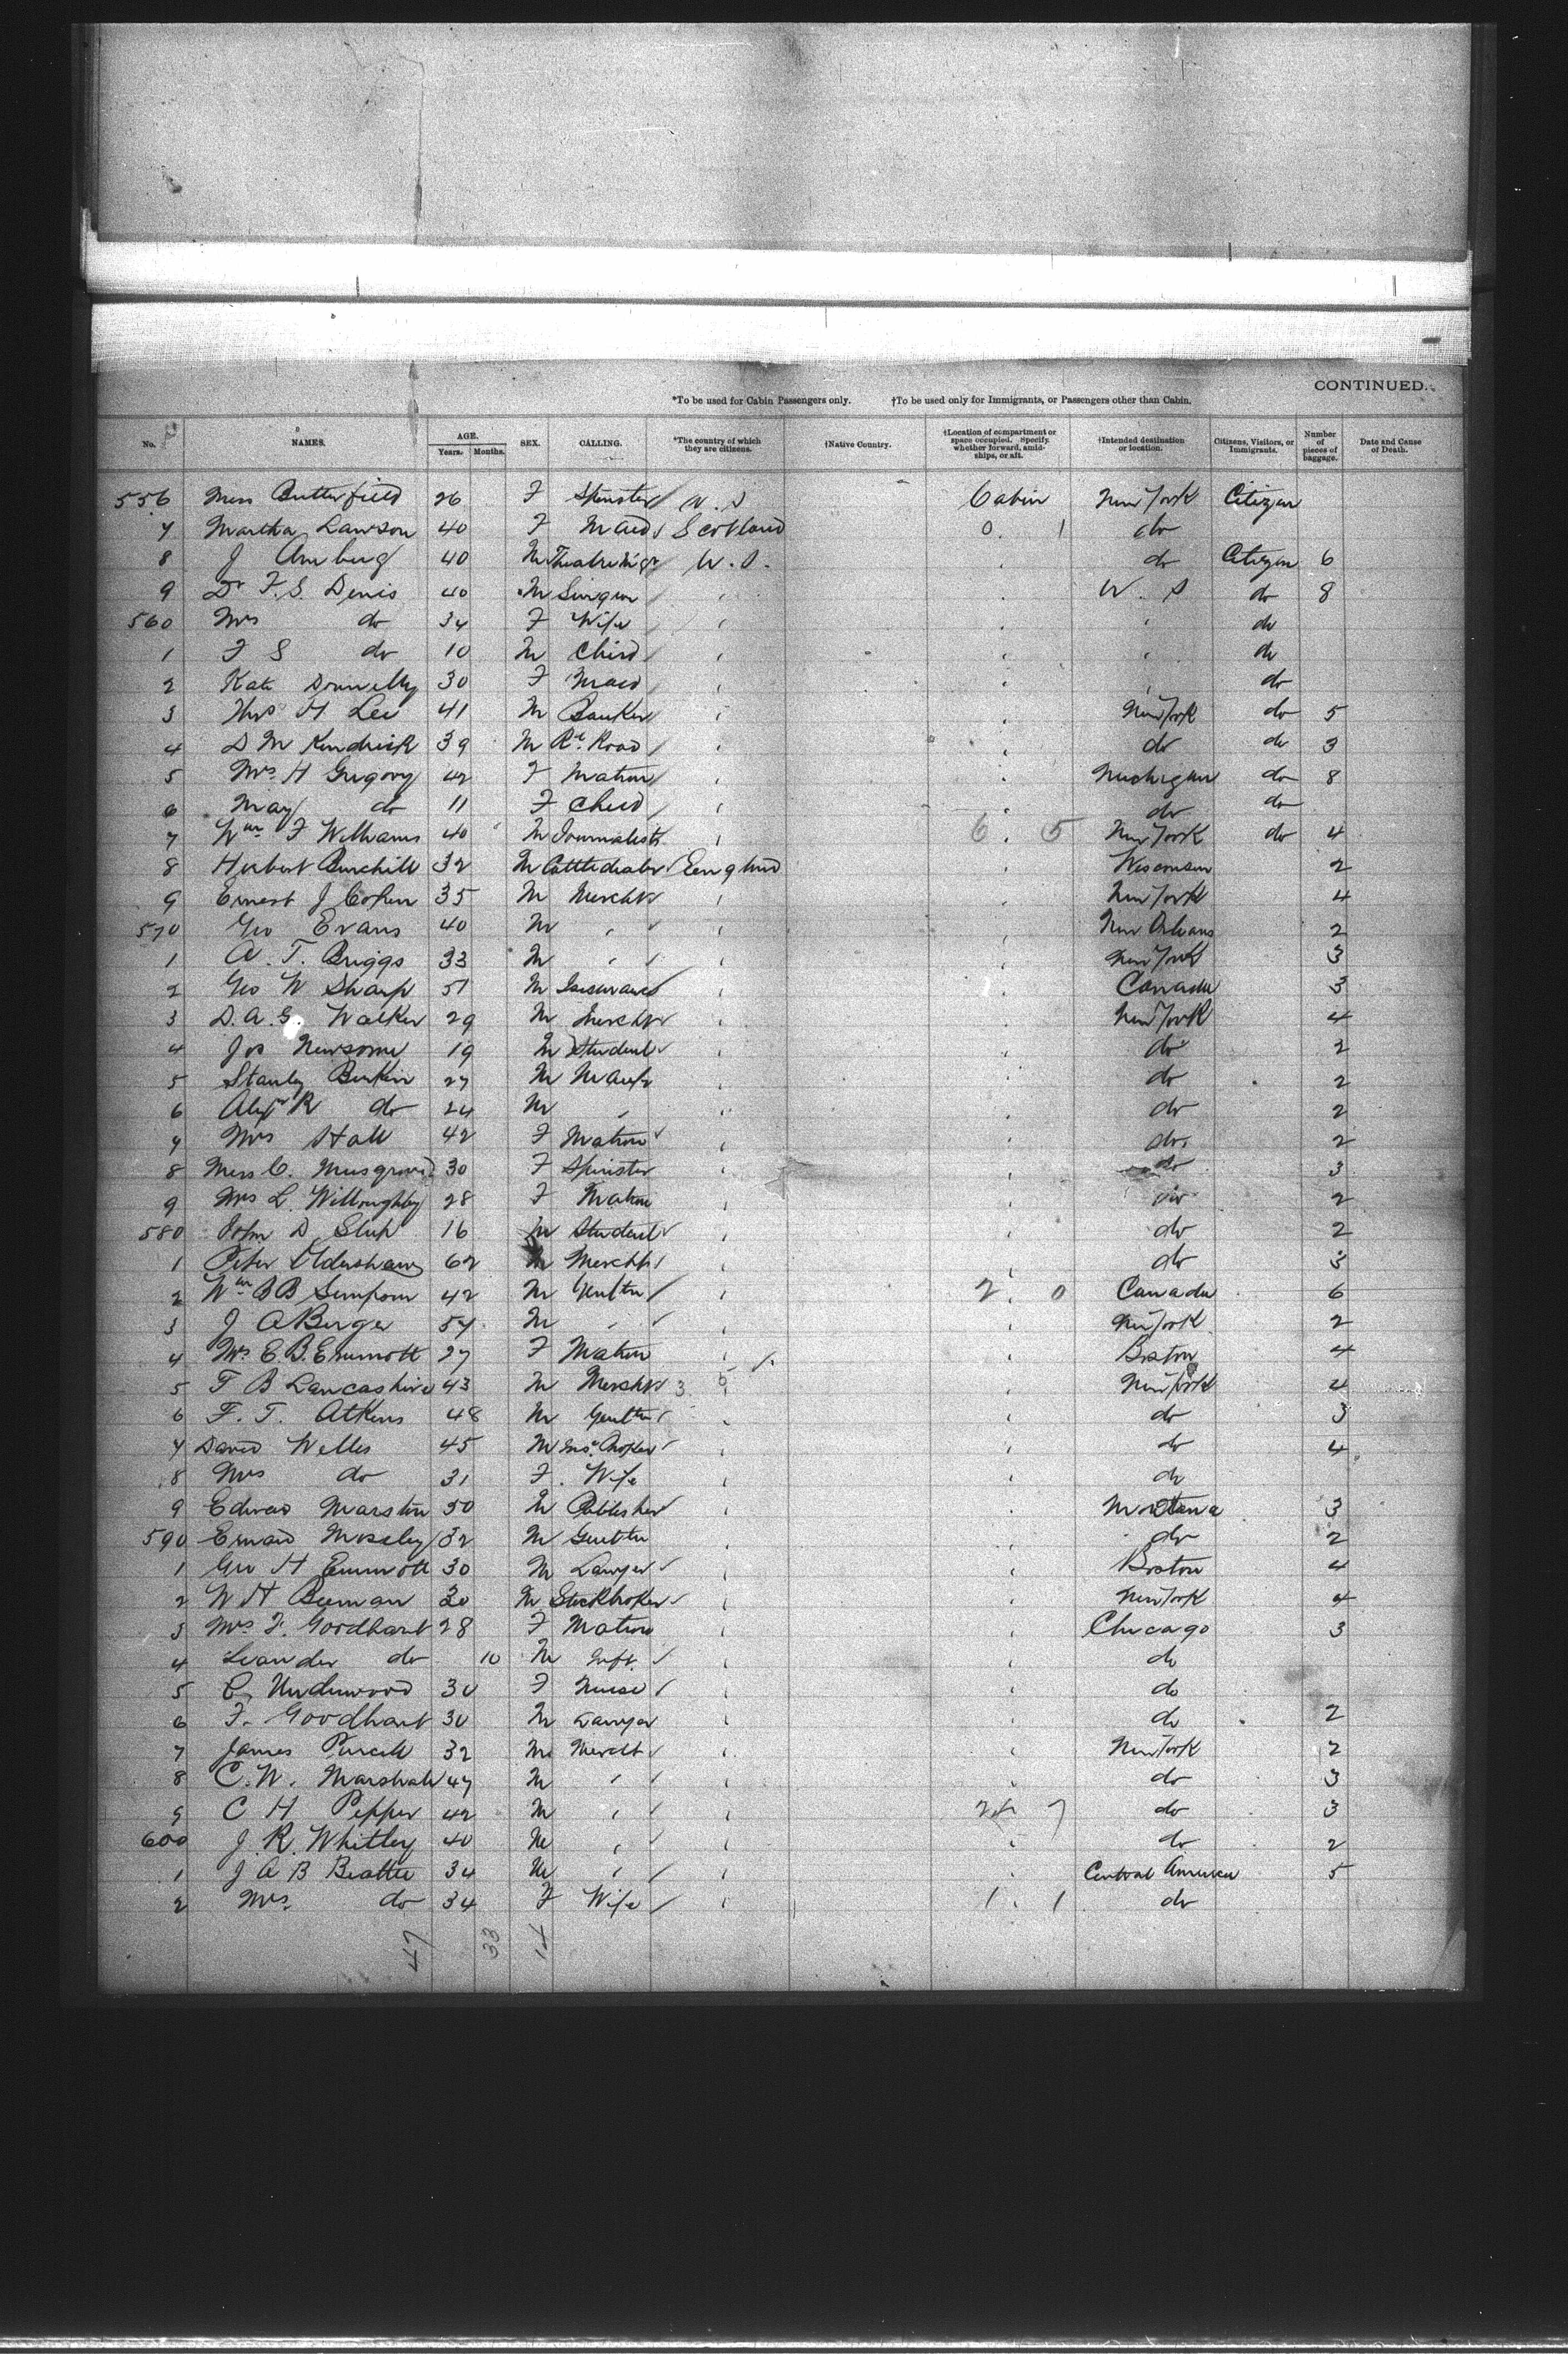 CONTINUED.
*To be used for Cabin Passengers only. †To be used only for Immigrants, or Passengers other than Cabin.
No. NAMES. AGE. Years. Months. SEX. CALLING. *The country of which they are citizens. †Native Country. †Location of compartment or space occupied. Specify whether forward, amidships, or aft. †Intended destination or location. Citizens, Visitors, or Immigrants. Number of pieces of baggage. Date and Cause of Death.
556 Miss Butterfield 26 F Spinster U.S Cabin New York Citizen
7 Martha Lawson 40 F Maid Scotland 0 1 do
8 J 40 M U.S. do Citizen 6
9 Dr F.S. Denis 40 M Surgeon U.S do 8
560 Mrs do 34 F Wife do
1 F S do 10 M Child do
2 Kate Donnelly 30 F Maid do
3 Thos H Lee 41 M Banker New York do 5
4 D M Kendrick 39 M Rl. Road do do 3
5 Mrs H Gregory 42 F Matron Michigan do 8
6 May do 11 F Child do do
7 Wm F Williams 40 M Journalist 6 5 New York do 4
8 Herbert Burchill 32 M Cattledealer England Wisconsin 2
9 Ernest J Cohen 35 M Mercht New York 4
570 Geo Evans 40 M New Orleans 2
1 A. T. Briggs 33 M New York 3
2 Geo W Sharp 51 M Insurance Canada 3
3 D.A.G. Walker 29 M Mercht New York 4
4 Jos Newsome 19 M Student do 2
5 Stanley Birkin 27 M Manfr do 2
6 Alexr R do 24 M do 2
7 Mrs Hall 42 F Matron do 2
8 Miss C. Musgrove 30 F Spinster do 3
9 Mrs L. Willoughby 28 F Matron do 2
580 John D 16 M Student do 2
1 Peter Oldershaw 62 M Mercht do 3
2 Wm B B Simpson 42 M Gentn 2 0 Canada 6
3 J A Berger 54 M New York 2
4 Mrs E.B. Emmott 27 F Matron Boston 4
5 F B Lancashire 43 M Mercht 3 5 New York 4
6 F. T. Atkins 48 M Gentn do 3
7 David Welles 45 M Ins. Broker do 4
8 Mrs do 31 F Wife do
9 Edward Marston 50 M Publisher Montana 3
590 Mossley 32 M Gentn do 2
1 Geo H Emmott 30 M Lawyer Boston 4
2 W H Beeman 30 M Stockbroker New York 4
3 Mrs F. Goodhart 28 F Matron Chicago 3
4 Leander do 10 M Inft. do
5 C. Underwood 30 F Nurse do
6 F. Goodhart 30 M Lawyer do 2
7 James Purcell 32 M Mercht New York 2
8 C.W. Marshall 47 M do 3
9 C H Pepper 42 M 7 do 3
600 J. R. Whitley 40 M do 2
1 J A B Beattie 34 M Central America 5
2 Mrs. do 34 F Wife 1 1 do
47 33 14